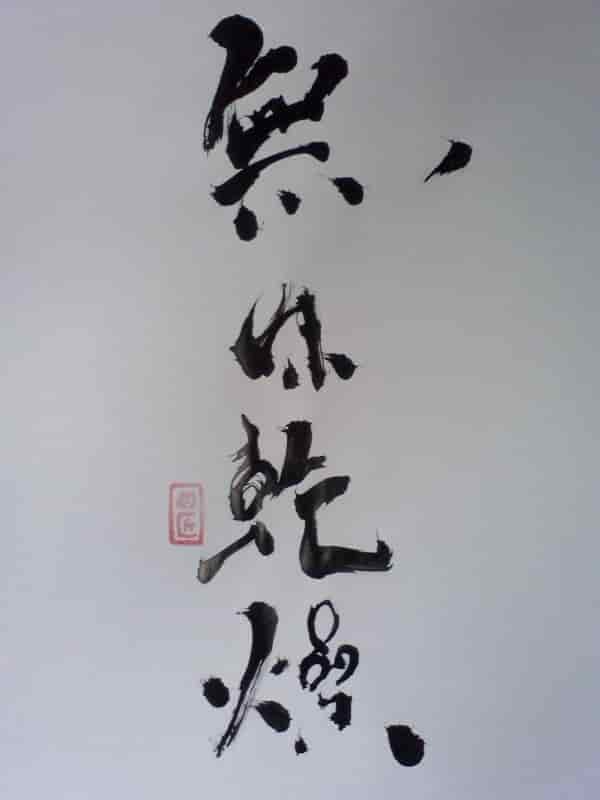 無味乾燥